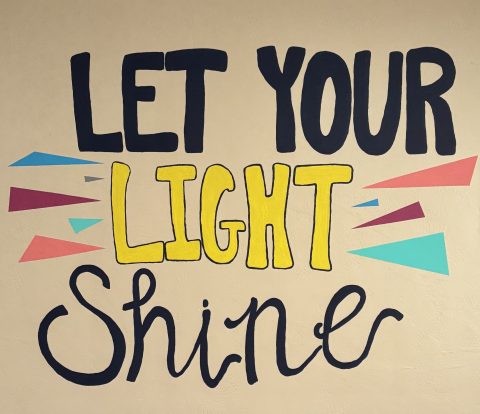 LET YOUR
LIGHT
Shine